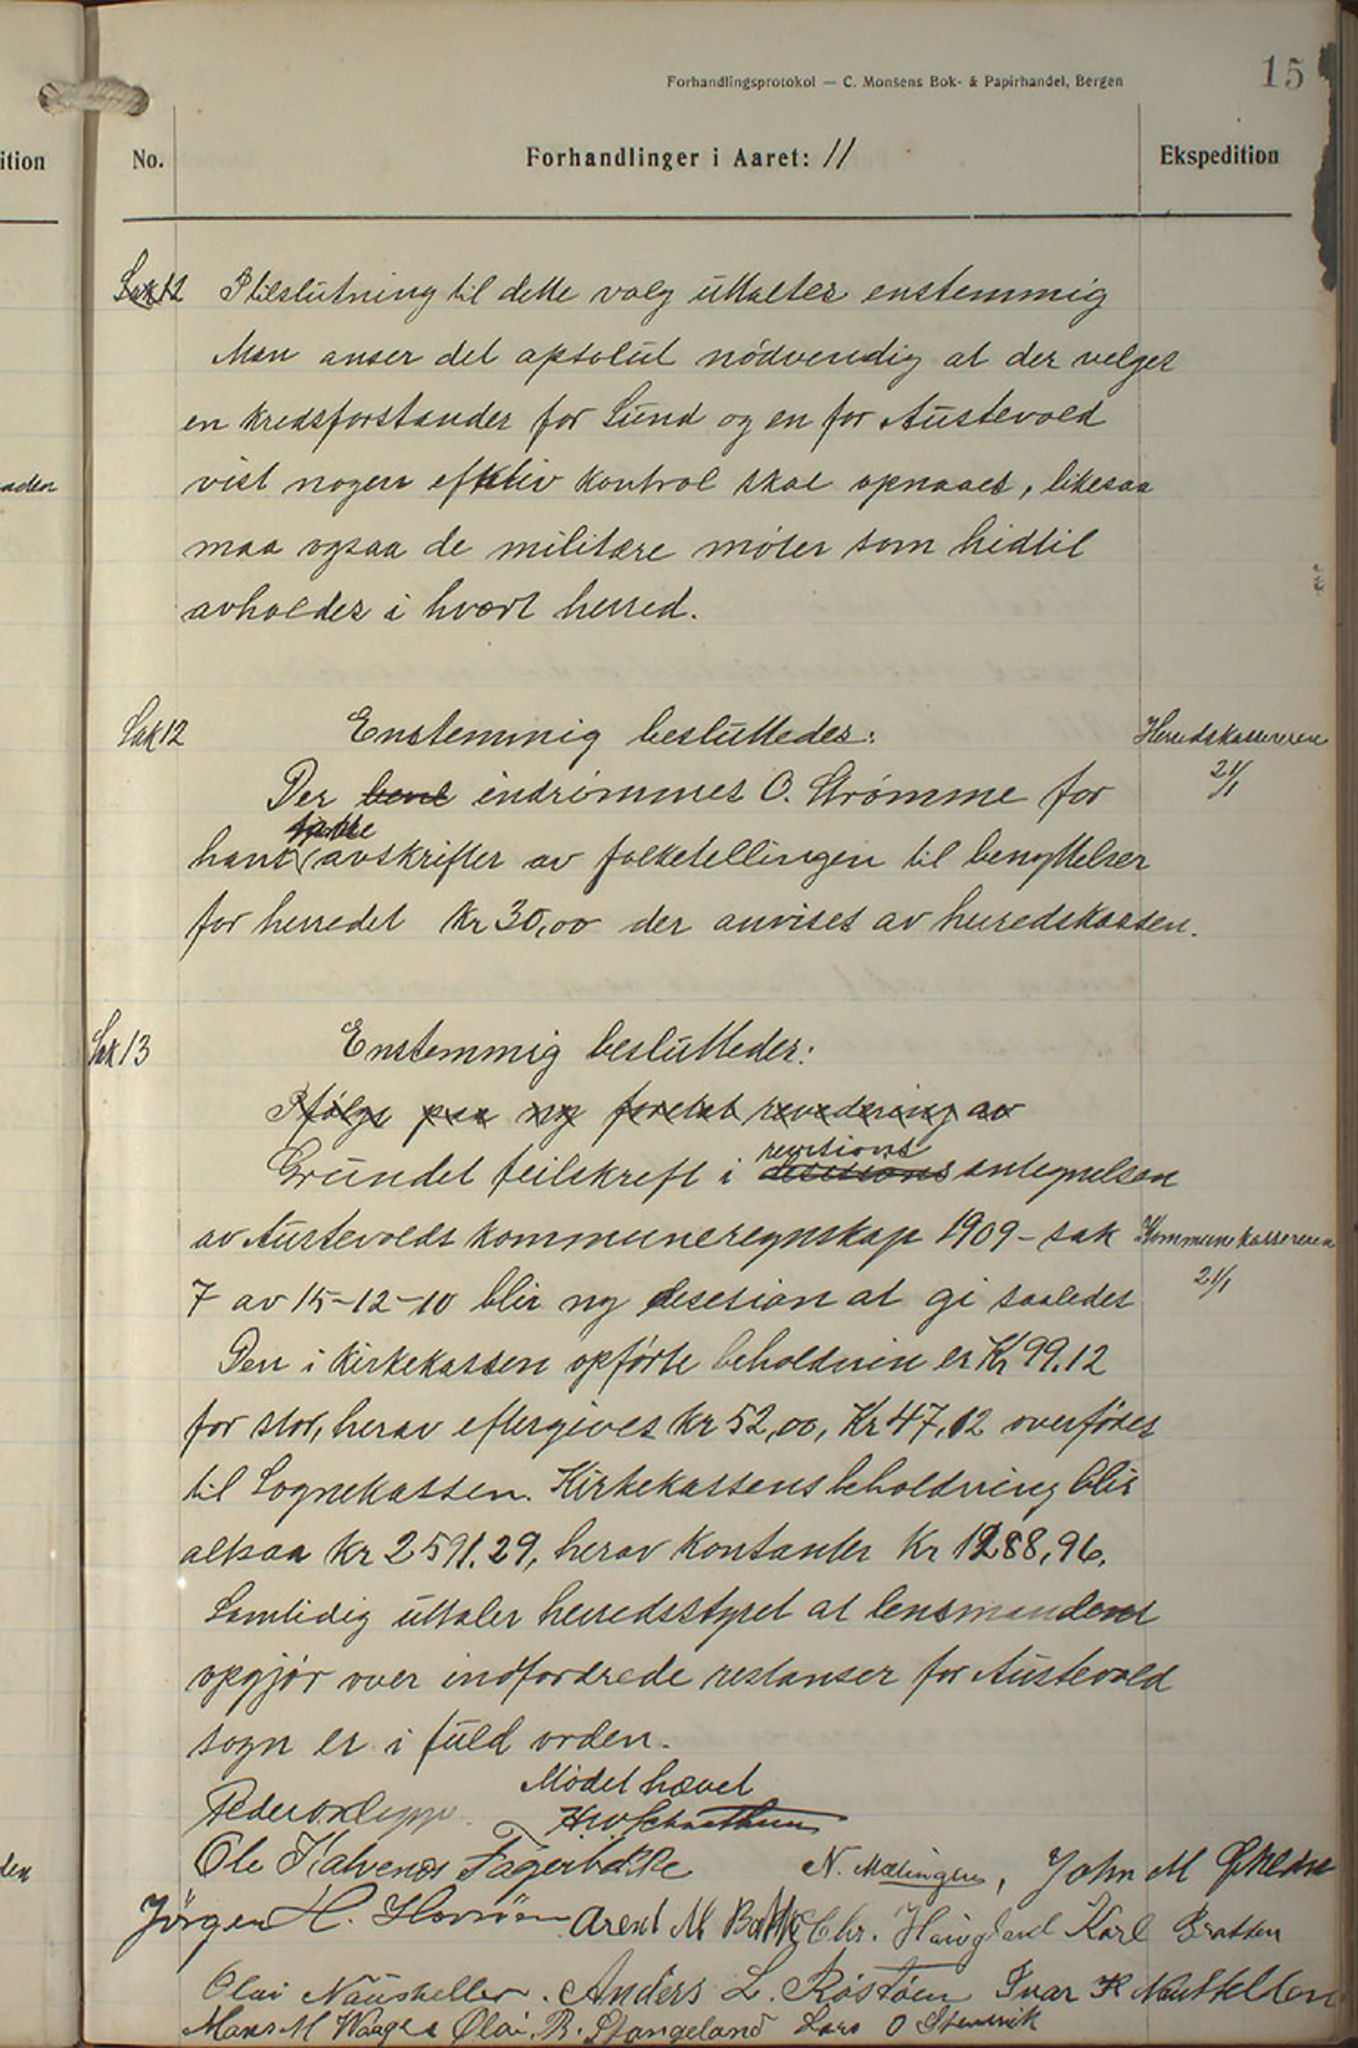 15
Forhandlingsprotokol — C. Monsens Bok- & Papirhandel, Bergen
ition
No.
Forhandlinger i Aaret: 11
Ekspedition
Sak 12 I tilslutning til dette valg uttaltes enstemmig
Man anser det apsolut nödvendig at der velges
en kredsforstander for Sund og en for Austevold
aden
vist nogen efktiv kontrol skal opnaaes, likesaa
maa ogsaa de militære möter som hidtil
avholdes i hvert herred.
Sak 12 Enstemmig besluttedes:
Herredskassereren
21/1
Der bevil indrömmes O. Strömme for
hans avskrifter av folketellingen til benyttelser
for herredet Kr 30,00 der anvises av herredskassen.
Sak 13 Enstemmig besluttedes:
Ifölge paa ny foretat revidering av
revisions
Grundet feilskreft i desesions antegnelsen
av Austevolds kommuneregnskap 1909 - sak
Kommunekassereren
21/1
7 av 15-12-10 blir ny desesion at gi saaledes
Den i Kirkekassen opförte beholdnin er Kr 99.12
for stor, herav eftergives Kr 52,00, Kr 47,12 overföres
til Sognekassen. Kirkekassens beholdning blir
altsaa Kr 2591.29, herav Kontanter Kr 1288,96.
Samtidig uttaler herredsstyret at lensmandens
opgjör over indfordrede restanser for Austevold
sogn er i fuld orden.
Mödet hævet
Ole Kalvenes Fagerbakke N. Mælingen, John M
den
Jörgen H. Arent M Bakke Chr. Haugland Karl Bratten
Olai Naustheller. Anders L. Röstöen Ivar K Naustheller
Mons M Waage Olai. B. Stangeland Lars O Stenevik